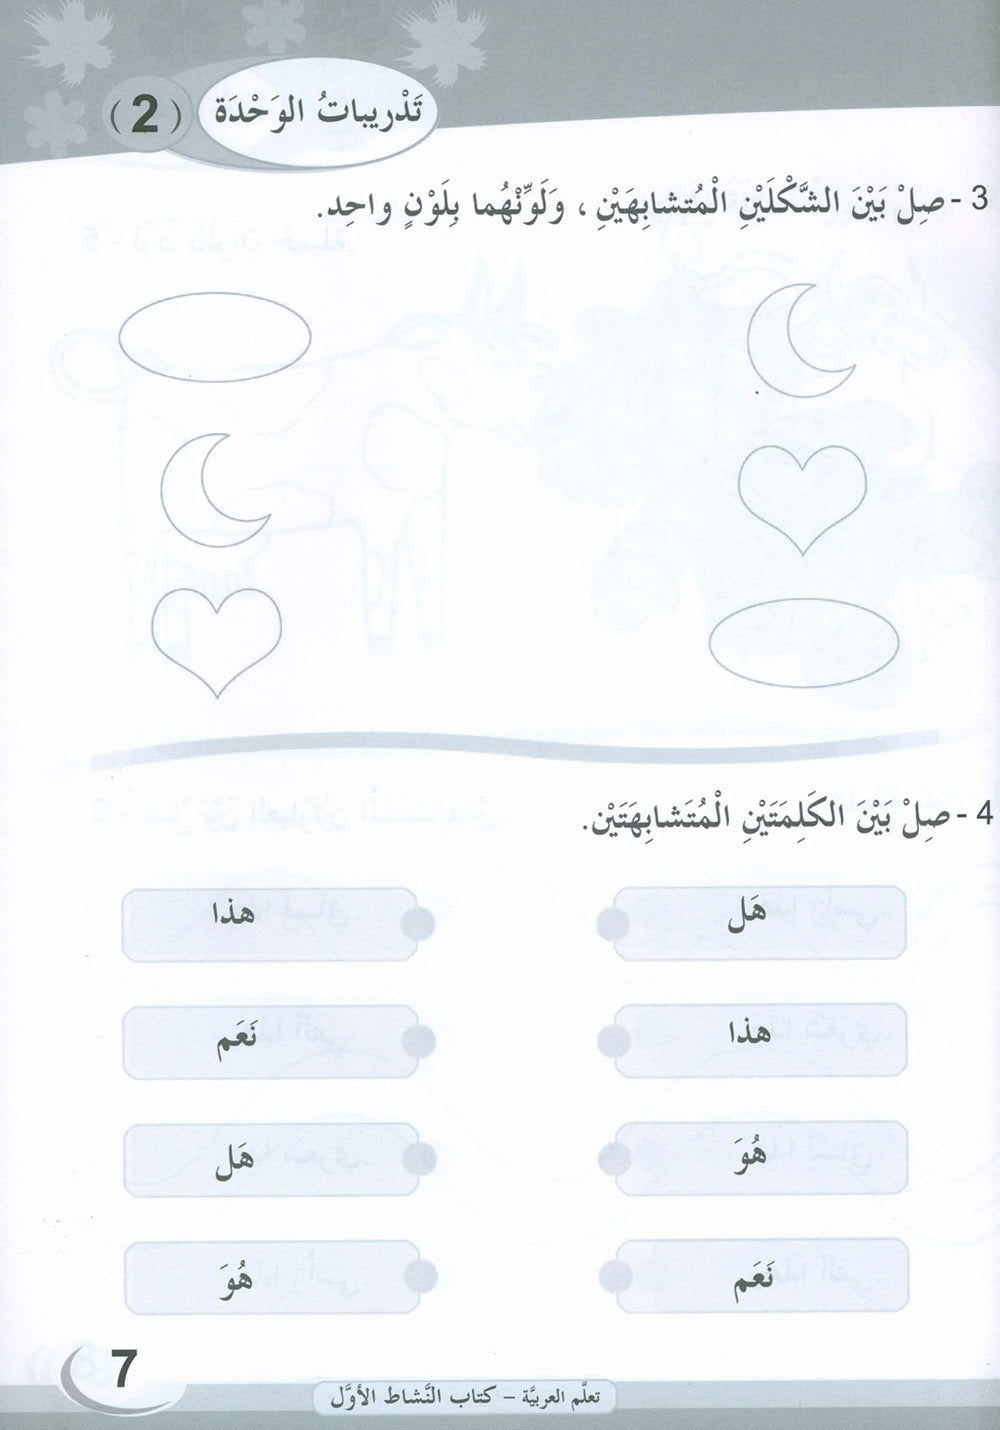 تَدْريباتُ الوَحْدَة (2)
3 - صِلْ بَيْنَ الشَّكْلَيْنِ الْمُتشابِهَيْنِ ، وَلَوِّنْهُما بِلَوْنٍ واحِد.
4 - صِلْ بَيْنَ الكَلِمَتَيْنِ الْمُتَشابِهَتَيْن.
هَل هذا
هذا نَعَم
هُوَ هَل
نَعَم هُوَ
7
تعلَّم العربيَّة – كتاب النَّشاط الأوَّل